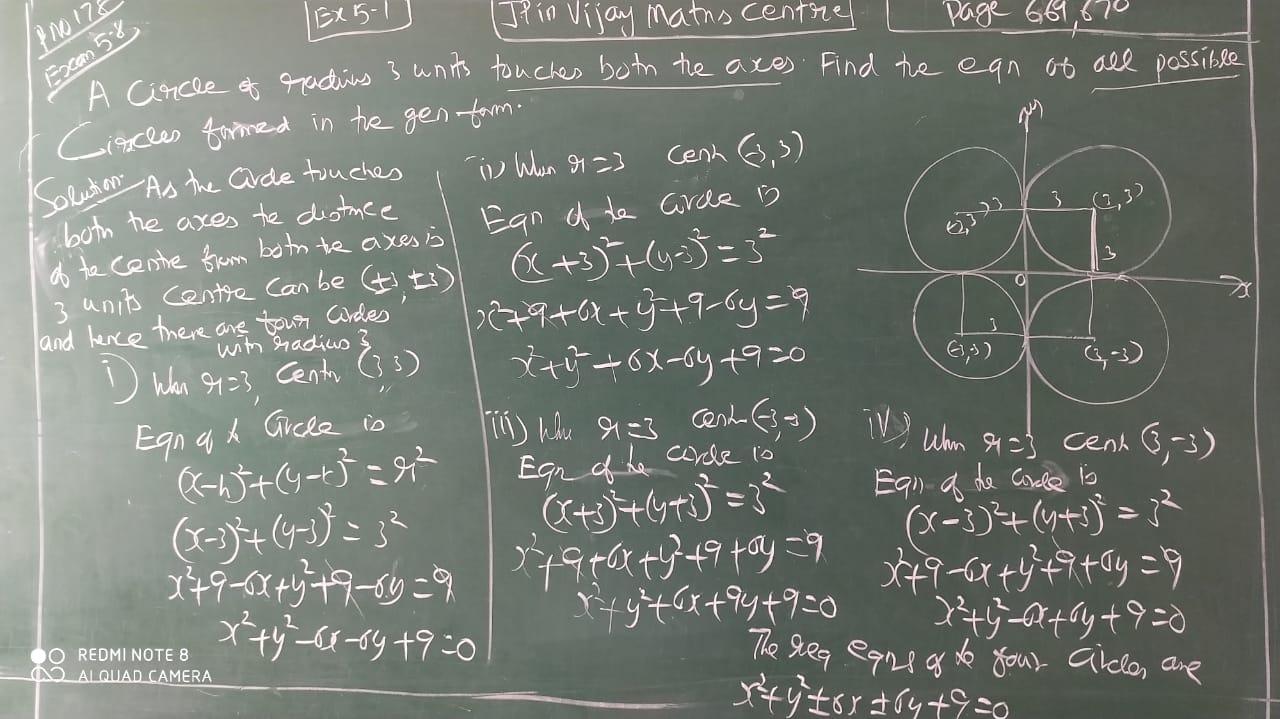 P NO 178
Exam 5.8
Ex 5-1
JPin Vijay Maths Centre
Page 669,670
A Circle of radius 3 units touches both the axes. Find the eqn of all possible
Circles formed in the gen form.
Solution: As the Circle touches
both the axes the distnce
of the Centre from both the axes is
3 units Centre can be (±3, ±3)
and hence there are four circles
with radius 3
i) When r=3, Centr (3,3)
Eqn of the Circle is
(x-h)²+(y-k)² = r²
(x-3)²+(y-3)² = 3²
x²+9-6x+y²+9-6y=9
x²+y²-6x-6y+9=0
ii) When r=3 Cent (-3,3)
Eqn of the circle is
(x+3)²+(y-3)² = 3²
x²+9+6x+y²+9-6y=9
x²+y²+6x-6y+9=0
iii) Whe r=3 Cent (-3,-3)
Eqn of the circle is
(x+3)²+(y+3)² = 3²
x²+9+6x+y²+9+6y=9
x²+y²+6x+9y+9=0
y
(-3,3) 3 3 (3,3)
3
0 x
3
(-3,3) (3,-3)
iv) When r=3 Cent (3,-3)
Eqn of the Circle is
(x-3)²+(y+3)² = 3²
x²+9-6x+y²+9+6y=9
x²+y²-6x+6y+9=0
The req eqns of the four Circles are
x²+y²±6x±6y+9=0
REDMI NOTE 8
AI QUAD CAMERA